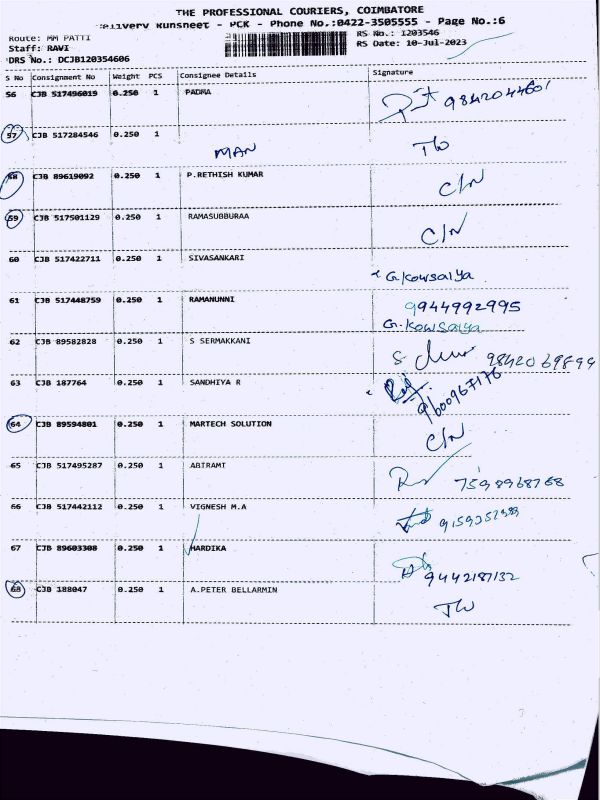 THE PROFESSIONAL COURIERS, COIMBATORE
Delivery Runsheet - PCK - Phone No.:0422-3505555 - Page No.:6
Route: MM PATTI
RS No.: 1203546
Staff: RAVI
RS Date: 10-Jul-2023
DRS No.: DCJB120354606
S No Consignment No Weight PCS Consignee Details Signature
56 CJB 517496019 0.250 1 PADMA 9842044601
57 CJB 517284546 0.250 1
MAN
58 CJB 89619092 0.250 1 P.RETHISH KUMAR C/N
59 CJB 517501129 0.250 1 RAMASUBBURAA C/N
60 CJB 517422711 0.250 1 SIVASANKARI
G.Kowsalya
61 CJB 517448759 0.250 1 RAMANUNNI 9944992995
G.Kowsalya
62 CJB 89582828 0.250 1 S SERMAKKANI
63 CJB 187764 0.250 1 SANDHIYA R 9600967176
64 CJB 89594801 0.250 1 MARTECH SOLUTION C/N
65 CJB 517495287 0.250 1 ABIRAMI 7598968768
66 CJB 517442112 0.250 1 VIGNESH M.A
67 CJB 89603308 0.250 1 HARDIKA
9442187132
68 CJB 188047 0.250 1 A.PETER BELLARMIN